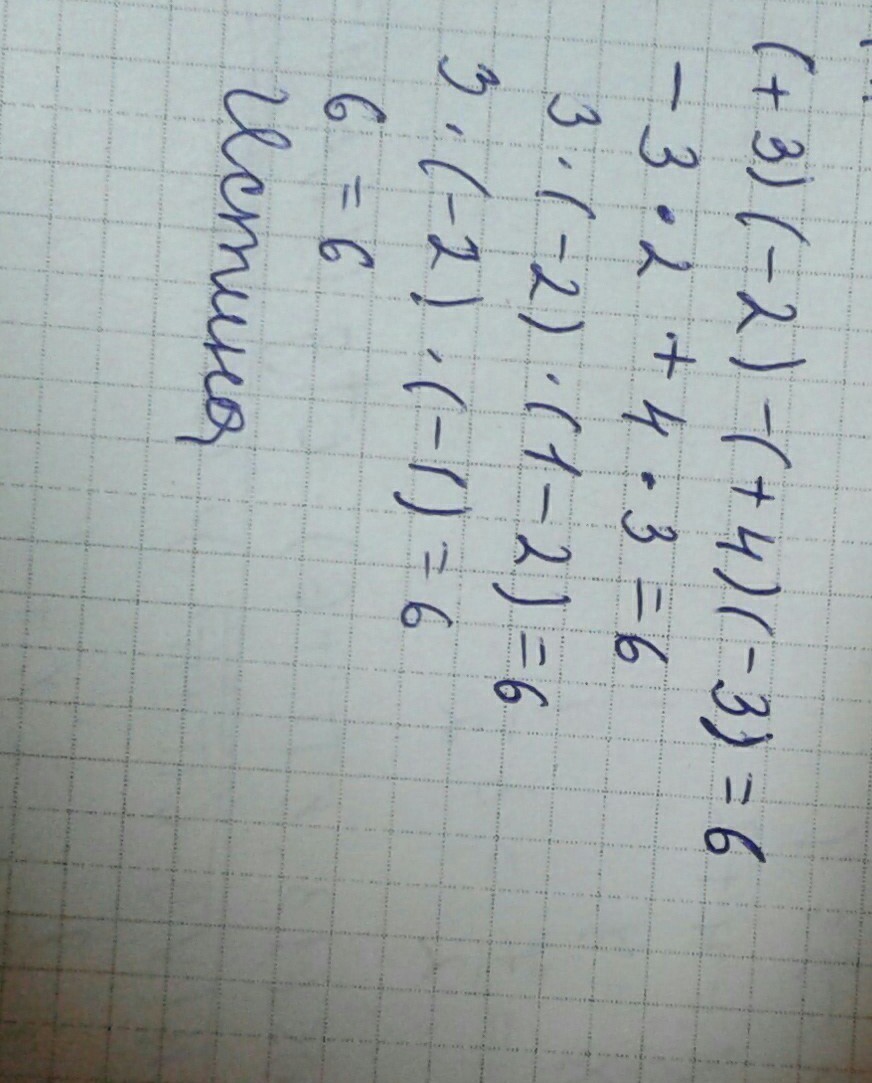 (+3)(-2)-(+4)(-3)=6
-3·2+4·3=6
3·(-2)·(1-2)=6
3·(-2)·(-1)=6
6=6
Истина